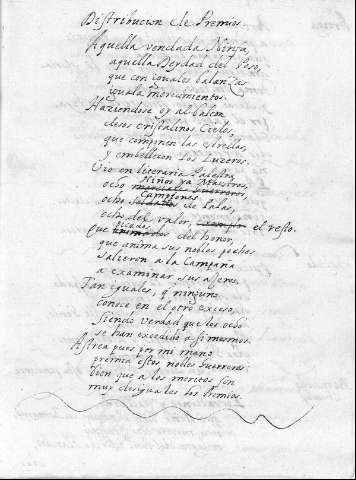 Distribucion de Premios.
Aquella vendada Ninfa,
aquella Deydad del Peso,
que con iguales balanzas
iguala merecimientos.
Haziendose oy al balcon
desos cristalinos Cielos,
que componen las estrellas,
y embellecen los Luzeros.
Vio en literaria Palestra,
Niños ya Maestros,
ocho marciales Guerreros,
Campiones
ocho soldados de Palas,
ocho del valor, exemplo el resto.
picados
Que animados del honor,
que anima sus nobles pechos
salieron a la Campaña
a examinar sus azeros.
Tan iguales, q ninguno
conoce en el otro exceso,
siendo verdad que los ocho
se han excedido a si mesmos.
Astrea pues por mi mano
premia estos nobles Guerreros:
bien que a los meritos son
muy desiguales los premios.